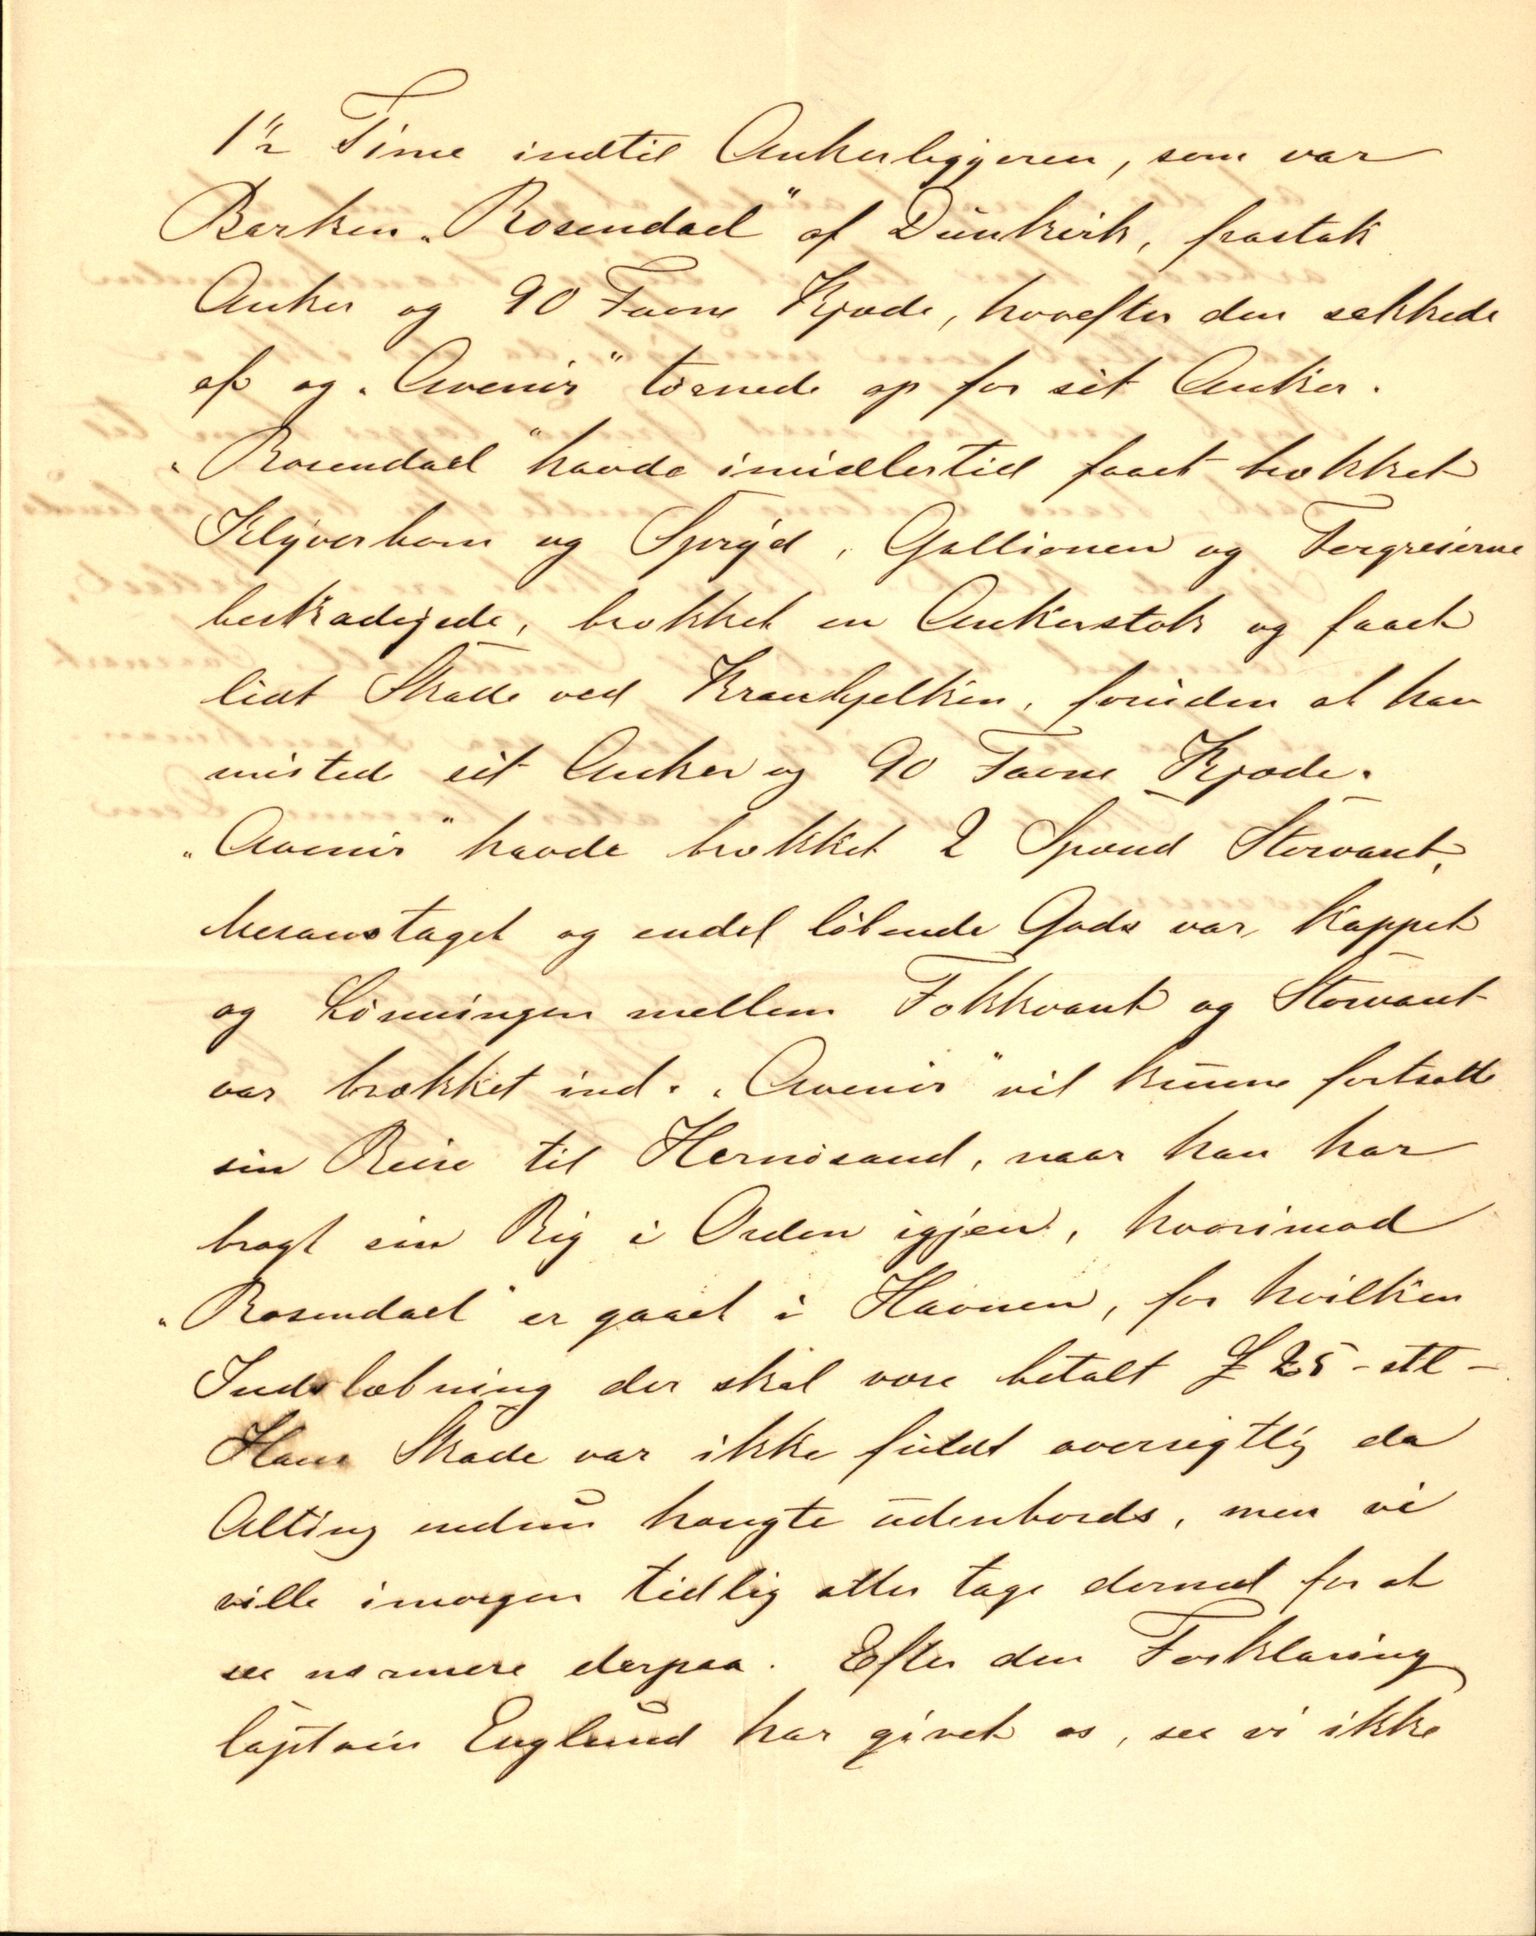 1½ Time indtil Ankerliggeren, som var
Barken „Rosendael" af Dünkirk, frastak
Anker og 90 Favne Kjæde, hvorefter den sækkede
af og „Avenir" tørnede op for sit Anker.
„Rosendael" havde imidlertid faaet brækket
Klyverbom og Spryd, Gallionen og
beskadigede, brækket en Ankerstok og faaet
lidt Skade ved Kranbjelken, foruden at han
mistede sit Anker og 90 Favne Kjæde.
„Avenir" havde brækket 2 Spænd Storvant,
Mesanstaget og endel löbende Gods var kappet
og Lønningen mellem Fokkvant og Storvant
var brækket ind. „Avenir" vil kunne fortsætte
sin Reise til Hernösand, naar han har
bragt sin Rig i Orden igjen, hvorimod
„Rosendael" er gaaet i Havnen, for hvilken
Indslæbning der skal være betalt £ 25 - stl -
Hans Skade var ikke fuldt oversigtlig da
Alting endnu hængte udenbords, men vi
ville imorgen tidlig atter tage derned for at
see nærmere derpaa. Efter den Forklaring
Captain Englund har givet os, see vi ikke